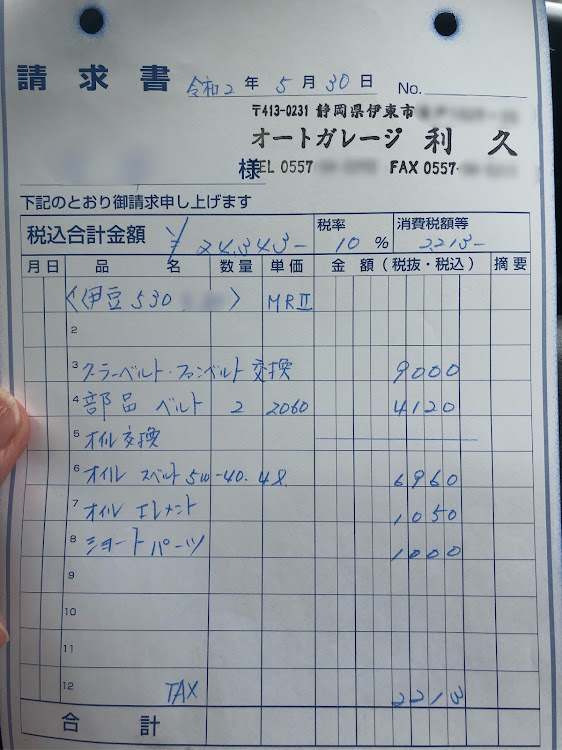 請求書 令和2年5月30日 No.
〒413-0231 静岡県伊東市
オートガレージ 利久
様 TEL 0557 FAX 0557-
下記のとおり御請求申し上げます
税込合計金額 ¥24,343- 税率 10% 消費税額等 2213-
月日 品名 数量 単価 金額(税抜・税込) 摘要
〈伊豆530 〉 MRⅡ
2
3 クーラーベルト・ファンベルト交換 9000
4 部品 ベルト 2 2060 4120
5 オイル交換
6 オイル スベルト5W-40. 4.8 6960
7 オイル エレメント 1050
8 ショートパーツ 1000
9
10
11
12 TAX 2213
合計